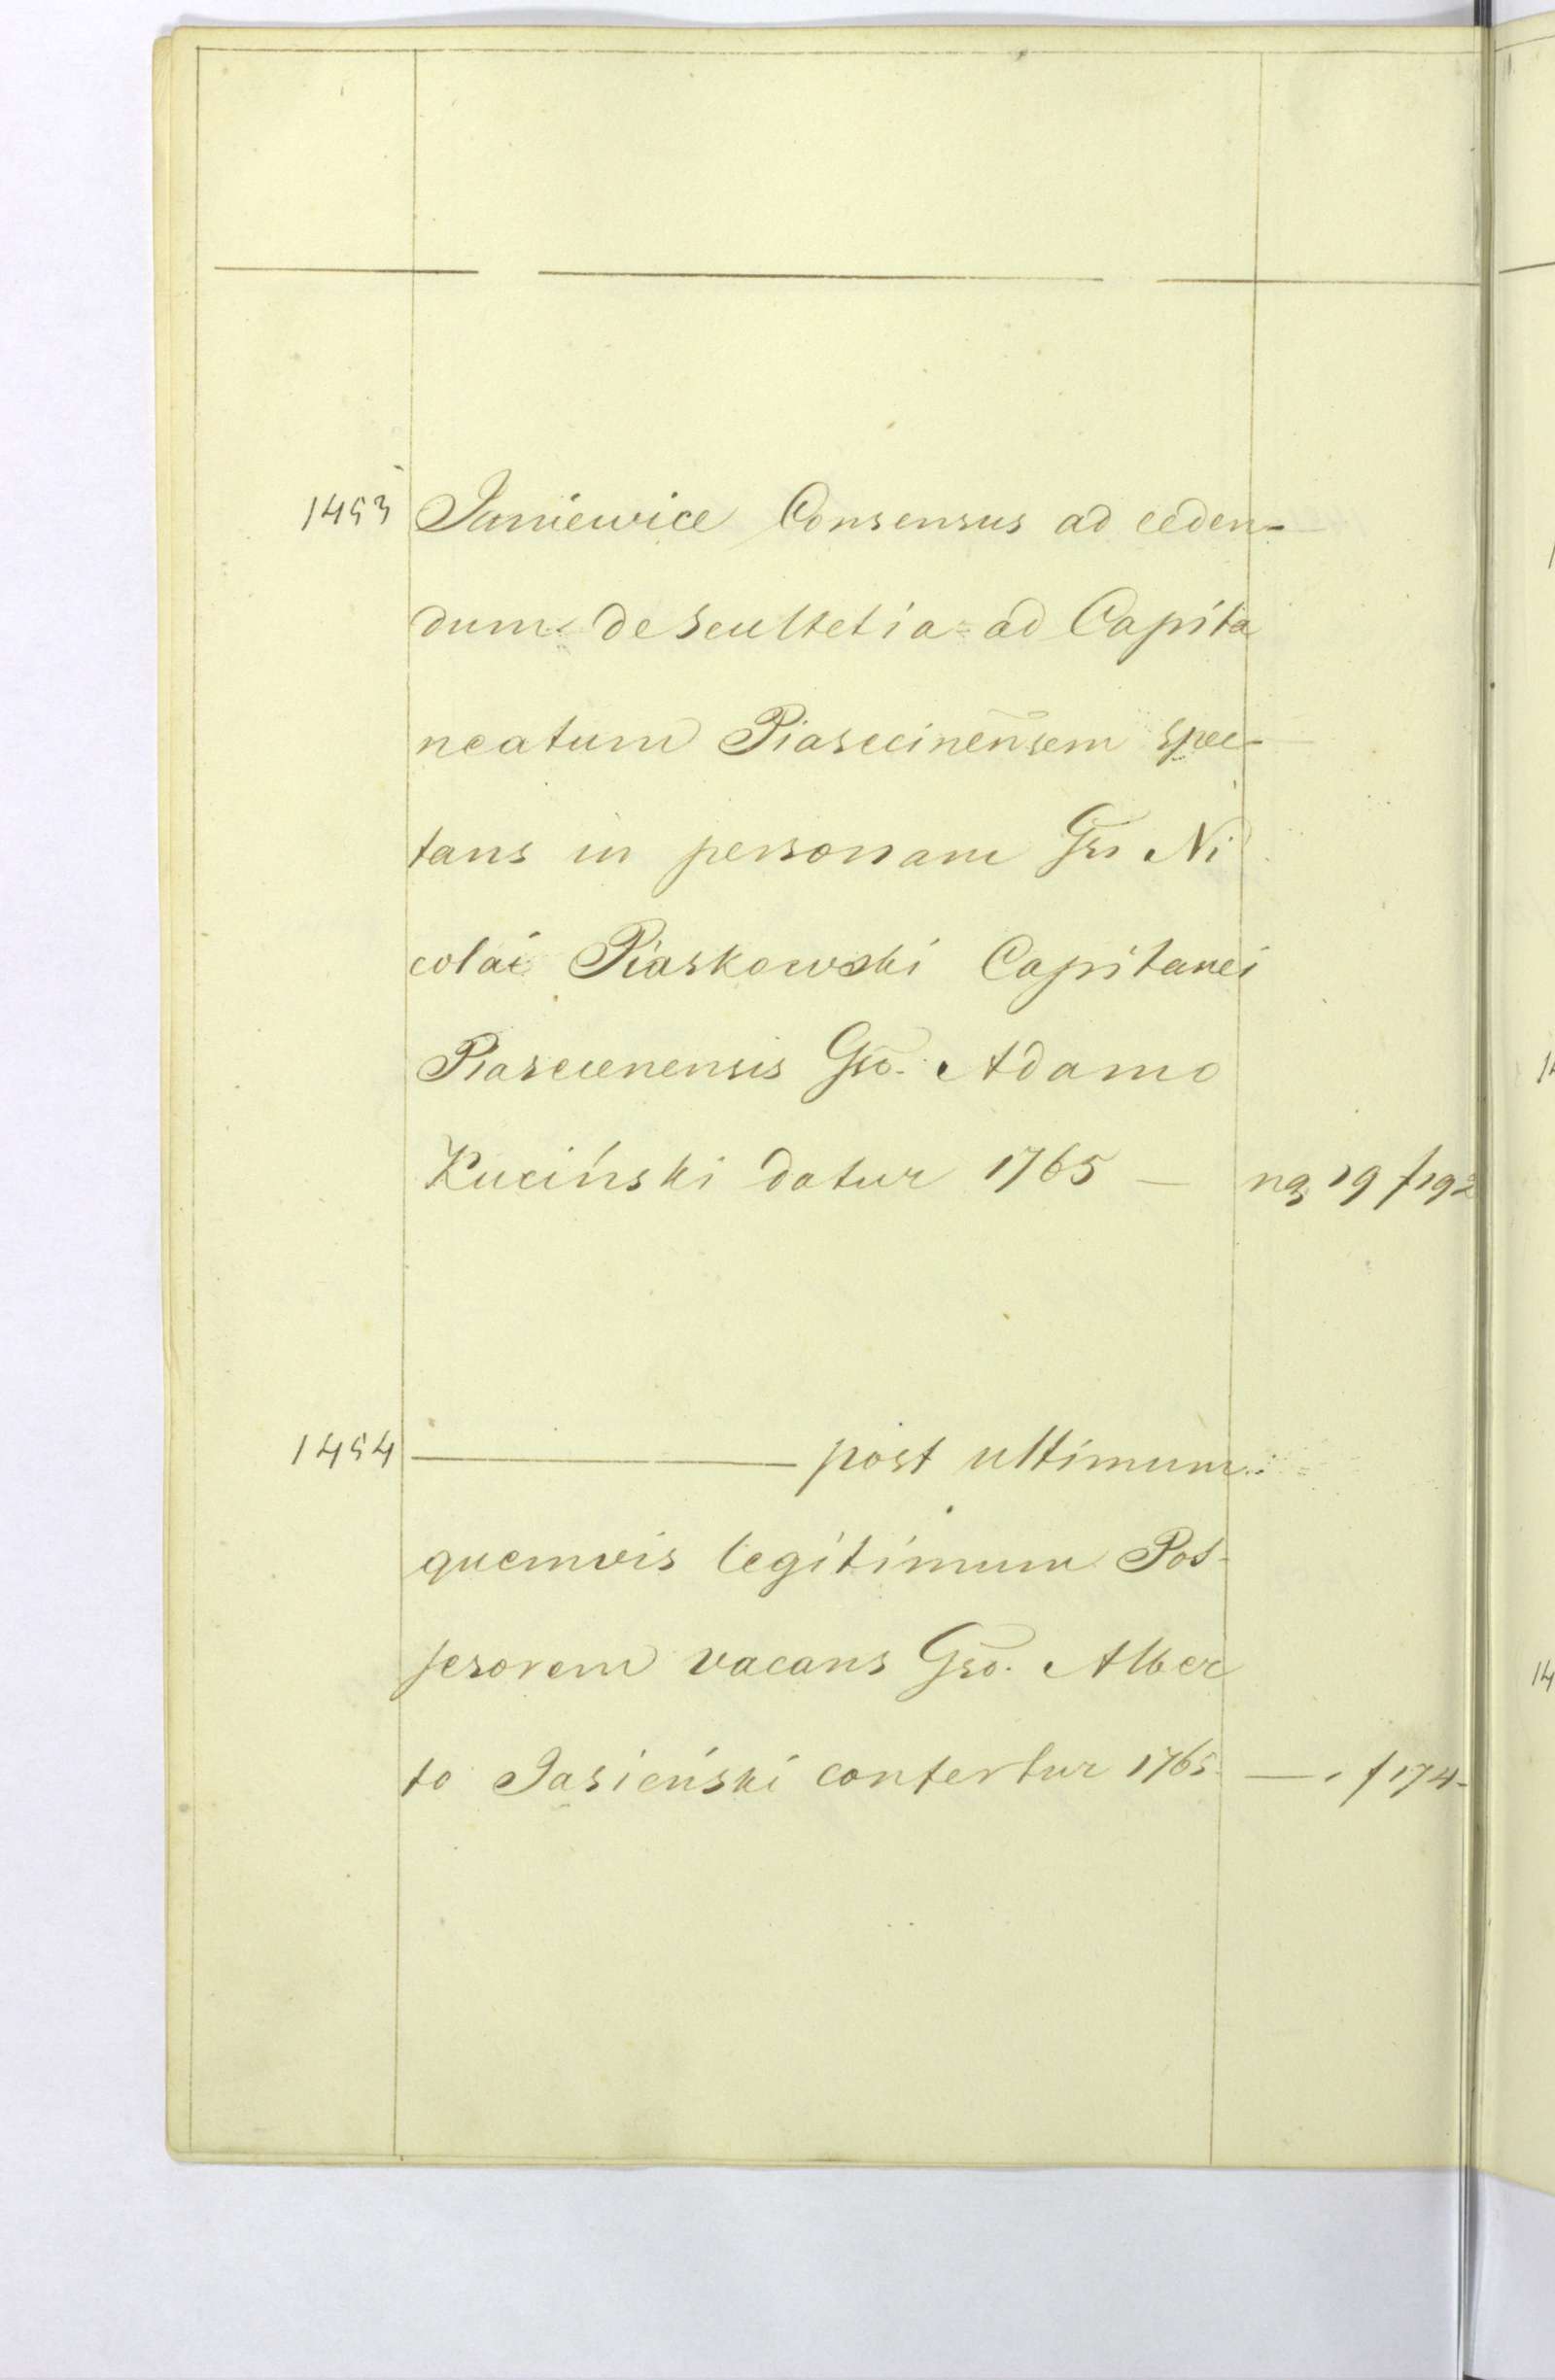 1453 Janiewice Consensus ad ceden-
dum de Scultetia ad Capita
neatum Piasecinensem spec-
tans in personam Gsi Ni
colai Piaskowski Capitanei
Piasecinensis Gso. Adamo
Kuciński datur 1765 — 19 f 192
1454 ——— post ultimum
quemvis legitimum Pos-
sesorem vacans Gso. Alber
to Jasieński confertur 1765 — f 174